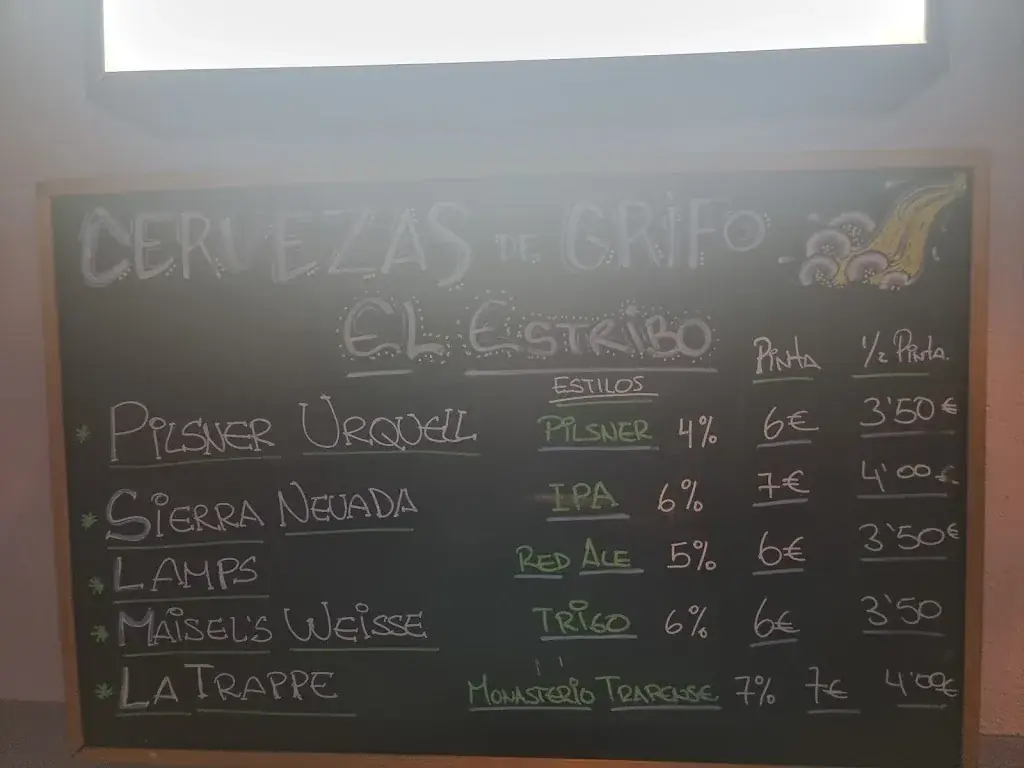 CERVEZAS DE GRIFO
EL ESTRIBO
ESTILOS PINTA 1/2 PINTA
* PILSNER URQUELL PILSNER 4% 6€ 3'50€
* SIERRA NEVADA IPA 6% 7€ 4'00€
* LAMPS RED ALE 5% 6€ 3'50€
* MAISEL'S WEISSE TRIGO 6% 6€ 3'50
* LA TRAPPE MONASTERIO TRAPENSE 7% 7€ 4'00€